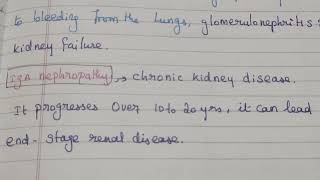 to bleeding from the lungs, glomerulonephritis :
kidney failure.
Ign nephropathy → chronic kidney disease.
It progresses over 10 to 20 yrs, it can lead
end - stage renal disease.